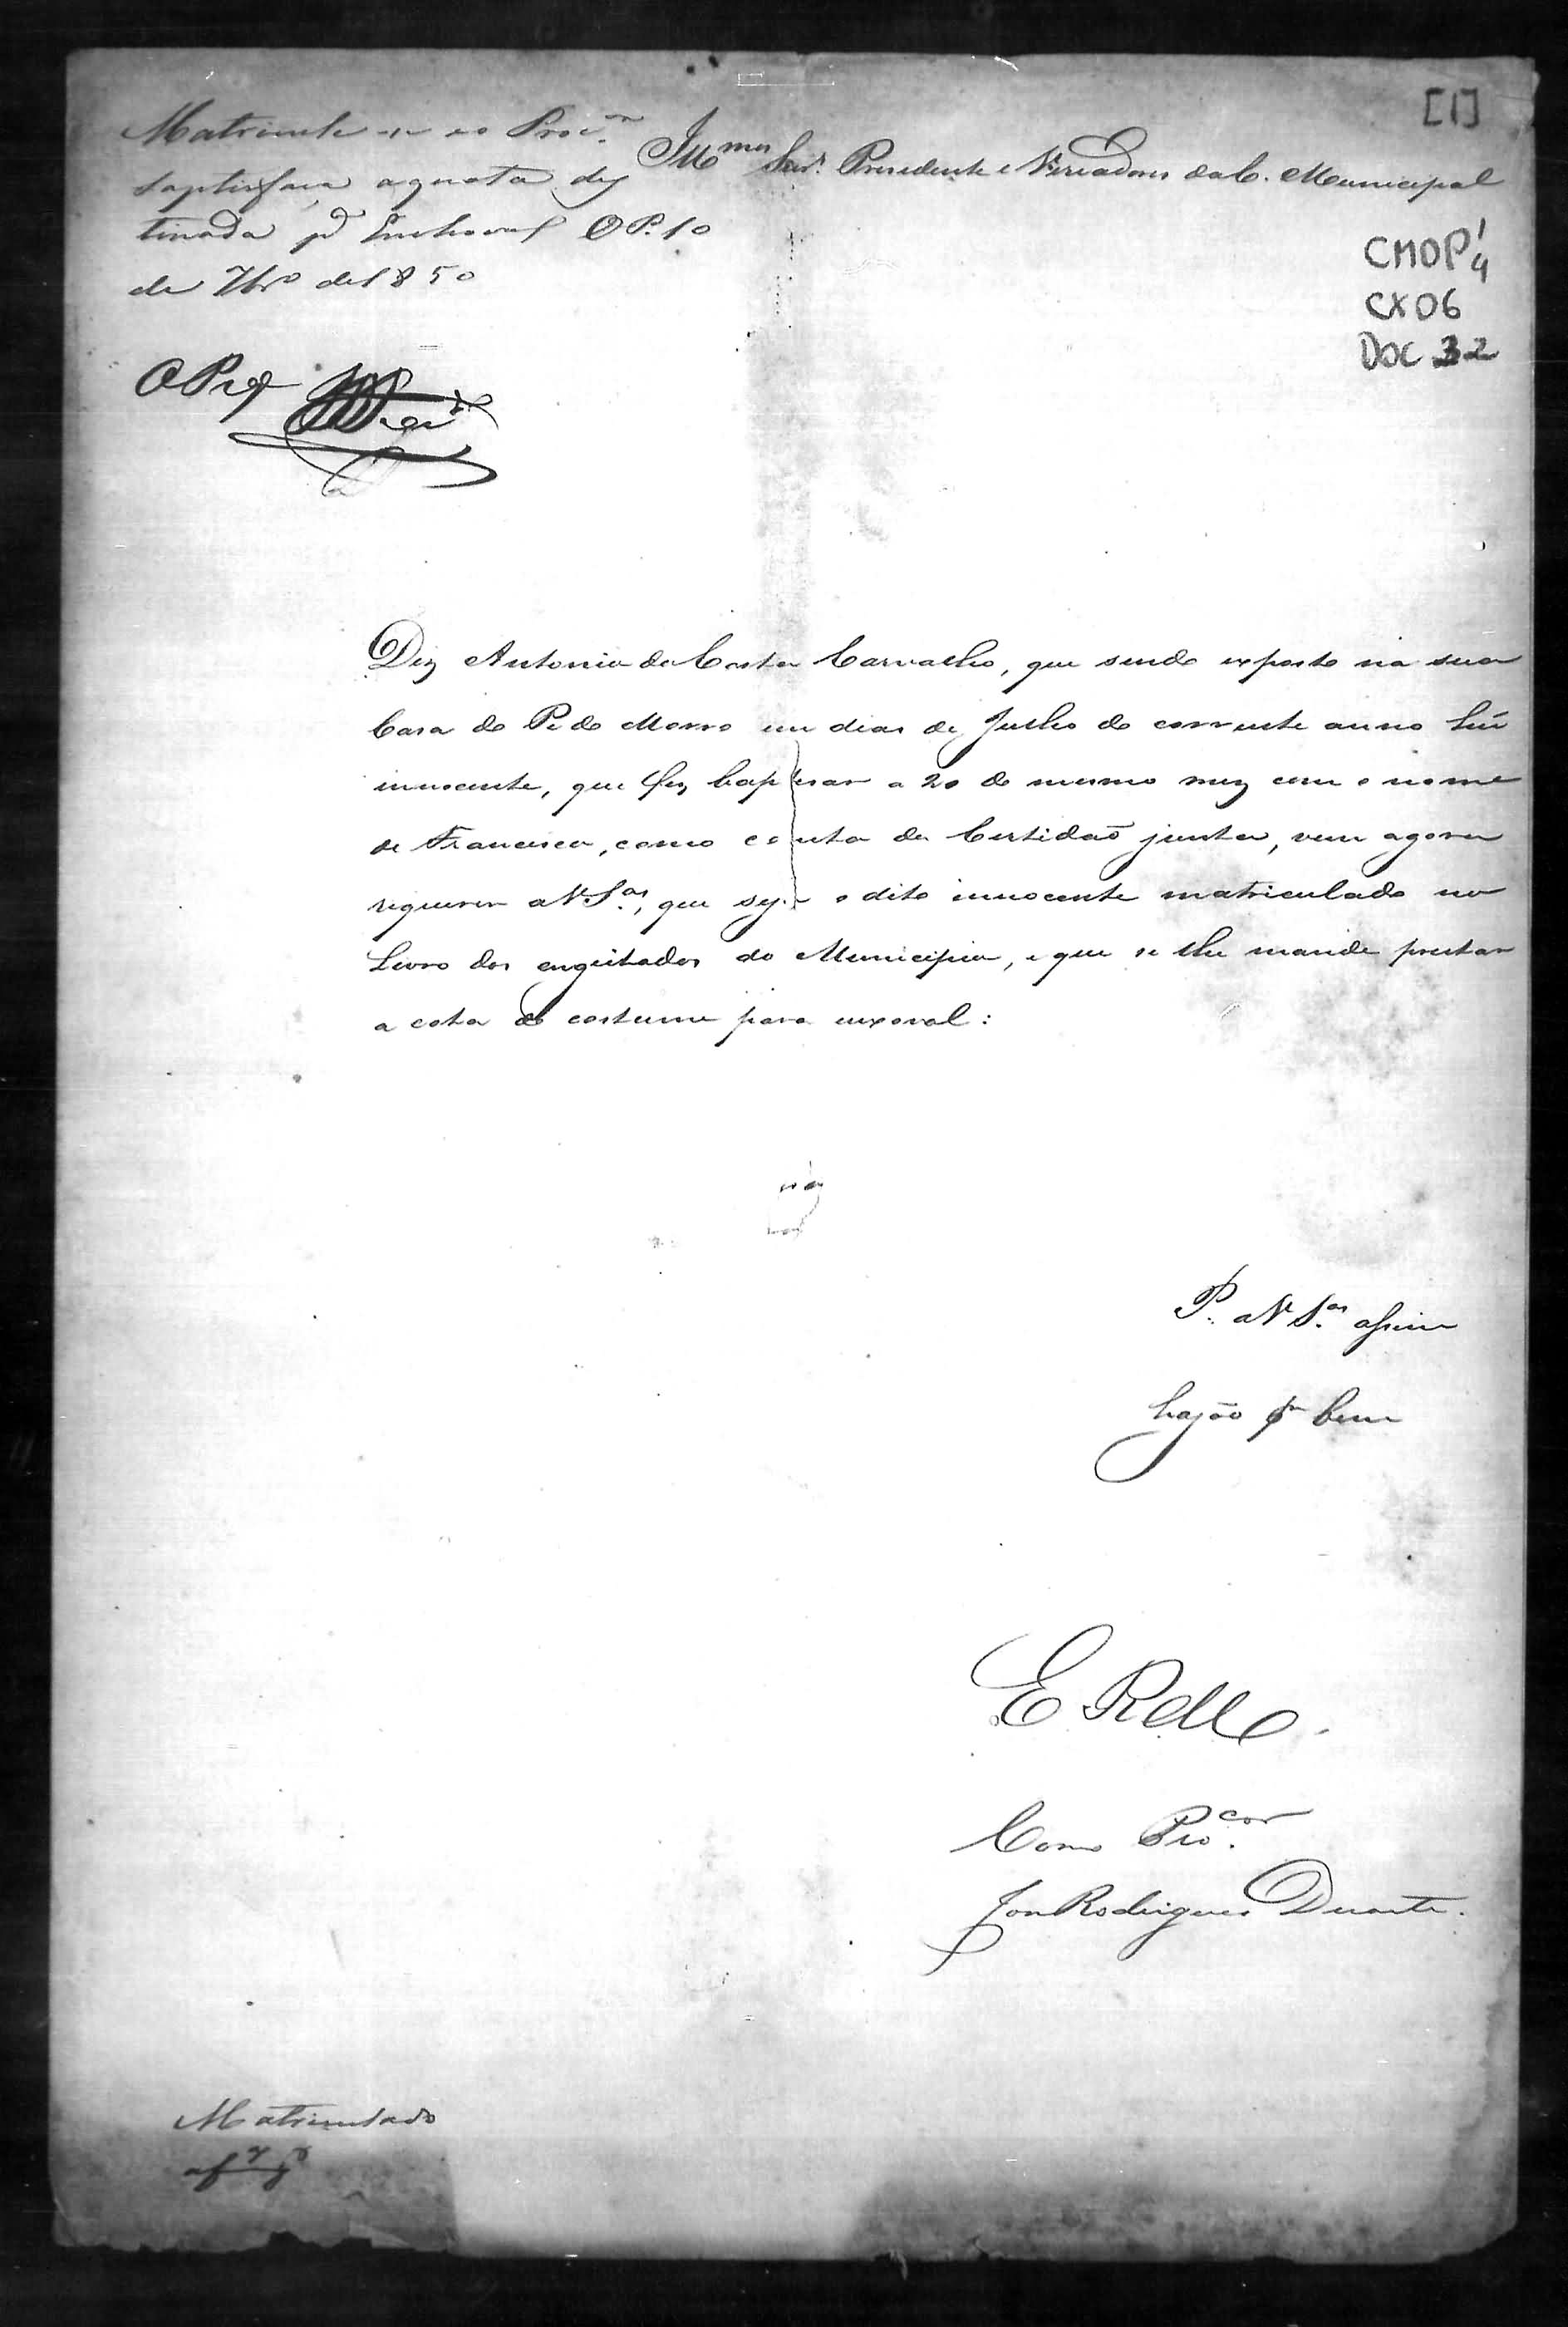 [1]
Matricule-se e o Proc.or
saptisfaça aquota des
tinada pa Enchoval OP. 10
de 7bro de 1850
O Pres
Illmos Snrs. Presidente e Vereadores da C. Municipal
CMOP 1/4
CX 06
DOC 32
Diz Antonio da Costa Carvalho, que sendo exposto na sua
Casa do Pe do Morro em dias de Julho do corrente anno hũ
innocente, que fez baptisar a 20 do mesmo mez com o nome
de Francisco, como consta da Certidaõ junta, vem agora
requerer a V. S.as, que seja o dito innocente matriculado no
Livro dos engeitados do Municipio, e que se lhe mande prestar
a cota do costume para enxoval:
P. a V. S.as assim
hajão pr bem
E R Mce.
Como Pro.cor
José Rodrigues Duarte.
Matriculado